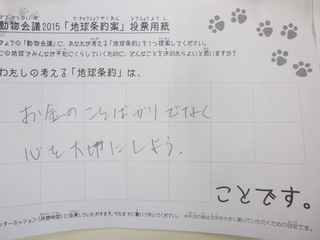 動物会議2015「地球条約案」投票用紙
「動物会議」に、あなたが考える「地球条約」を1つ提案してください。
この地球でみんなが平和にくらしていくために、どんなことを決めたらよいと思いますか？
わたしの考える「地球条約」は、
お金のことばかりでなく
心を大切にしよう.
ことです。